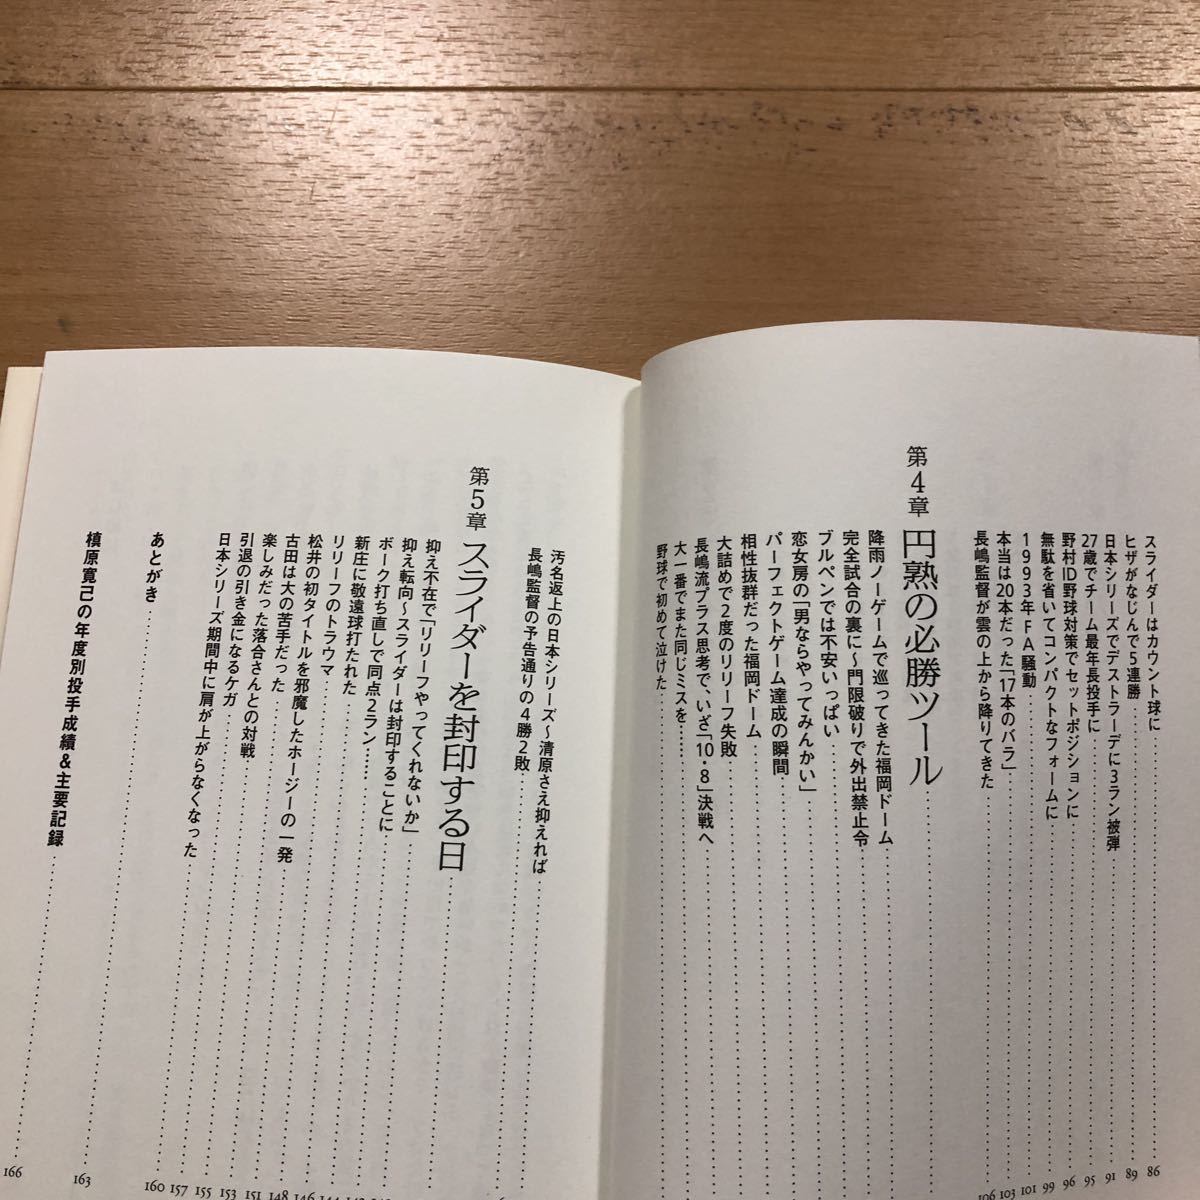 スライダーはカウント球に 86
ヒザがなじんで5連勝 89
日本シリーズでデストラーデに3ラン被弾 91
27歳でチーム最年長投手に 95
野村ID野球対策でセットポジションに 96
無駄を省いてコンパクトなフォームに 99
1993年FA騒動 101
本当は20本だった「17本のバラ」 103
長嶋監督が雲の上から降りてきた 106
第4章 円熟の必勝ツール
降雨ノーゲームで巡ってきた福岡ドーム
完全試合の裏に～門限破りで外出禁止令
ブルペンでは不安いっぱい
恋女房の「男ならやってみんかい」
パーフェクトゲーム達成の瞬間
相性抜群だった福岡ドーム
大詰めで2度のリリーフ失敗
長嶋流プラス思考で、いざ「10・8」決戦へ
大一番でまた同じミスを……
野球で初めて泣けた
汚名返上の日本シリーズ～清原さえ抑えれば
長嶋監督の予告通りの4勝2敗
第5章 スライダーを封印する日
抑え不在で「リリーフやってくれないか」
抑え転向～スライダーは封印することに
ボーク打ち直しで同点2ラン……
新庄に敬遠球打たれた
リリーフのトラウマ
松井の初タイトルを邪魔したホージーの一発
古田は大の苦手だった 148
楽しみだった落合さんとの対戦 151
引退の引き金になるケガ 153
日本シリーズ期間中に肩が上がらなくなった 157
あとがき 160
槙原寛己の年度別投手成績&主要記録 166